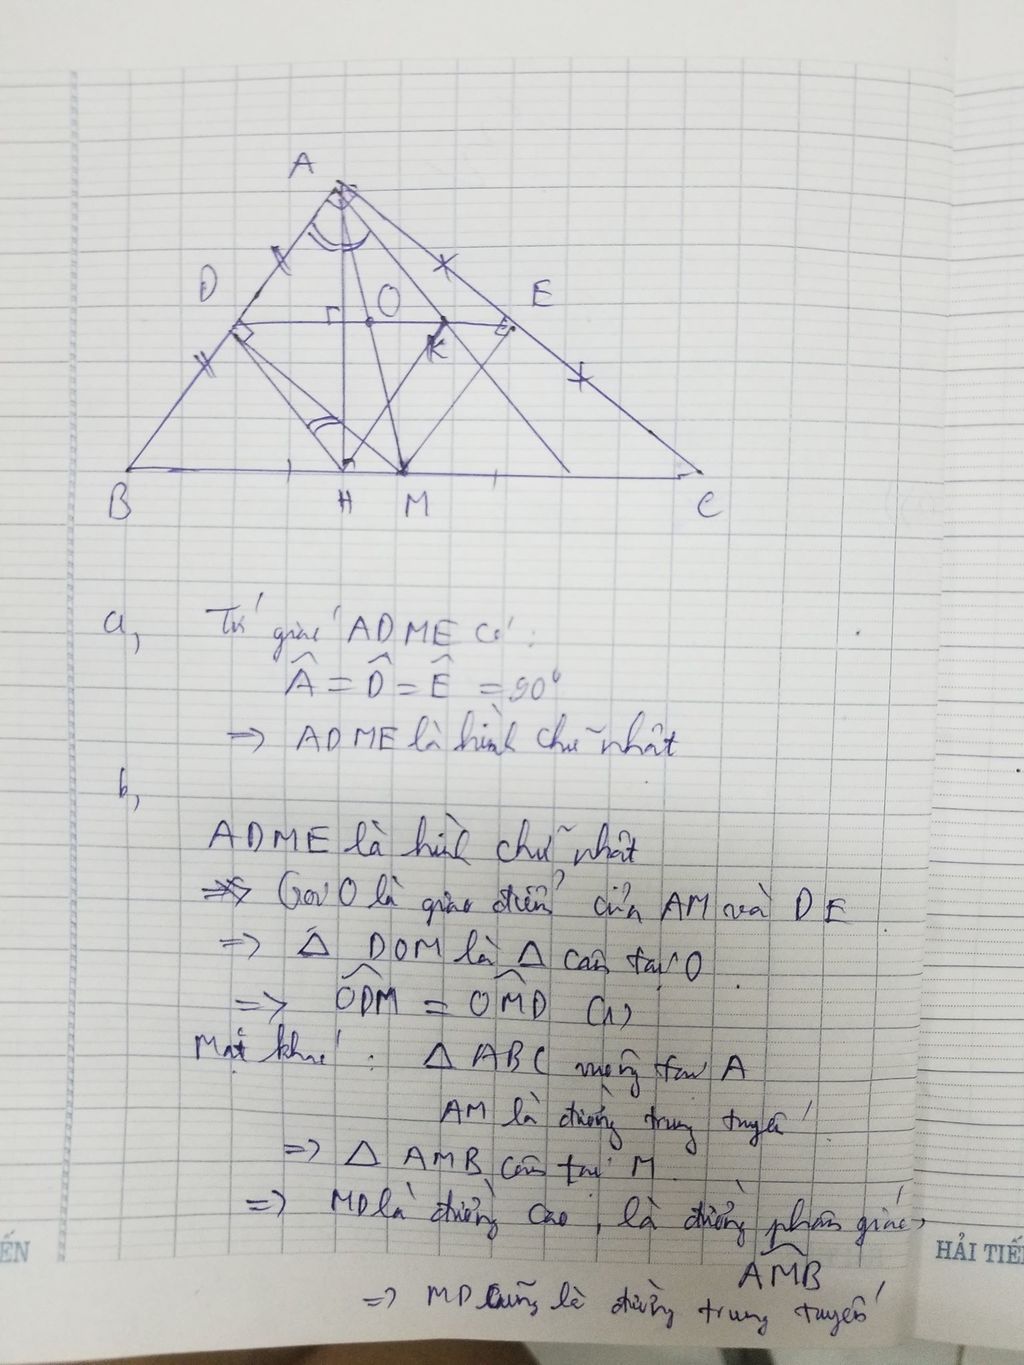 A
D
O
E
K
B
H
M
C
a, Tứ giác ADME có:
Â = D̂ = Ê = 90°
=> ADME là hình chữ nhật
b,
ADME là hình chữ nhật
=> Gọi O là giao điểm của AM và DE
=> Δ DOM là Δ cân tại O
=> ODM = OMD (1)
Mặt khác: Δ ABC vuông tại A
AM là đường trung tuyến
=> Δ AMB cân tại M
=> MD là đường cao, là đường phân giác
AMB
=> MD cũng là đường trung tuyến
ẾN
HẢI TIẾ